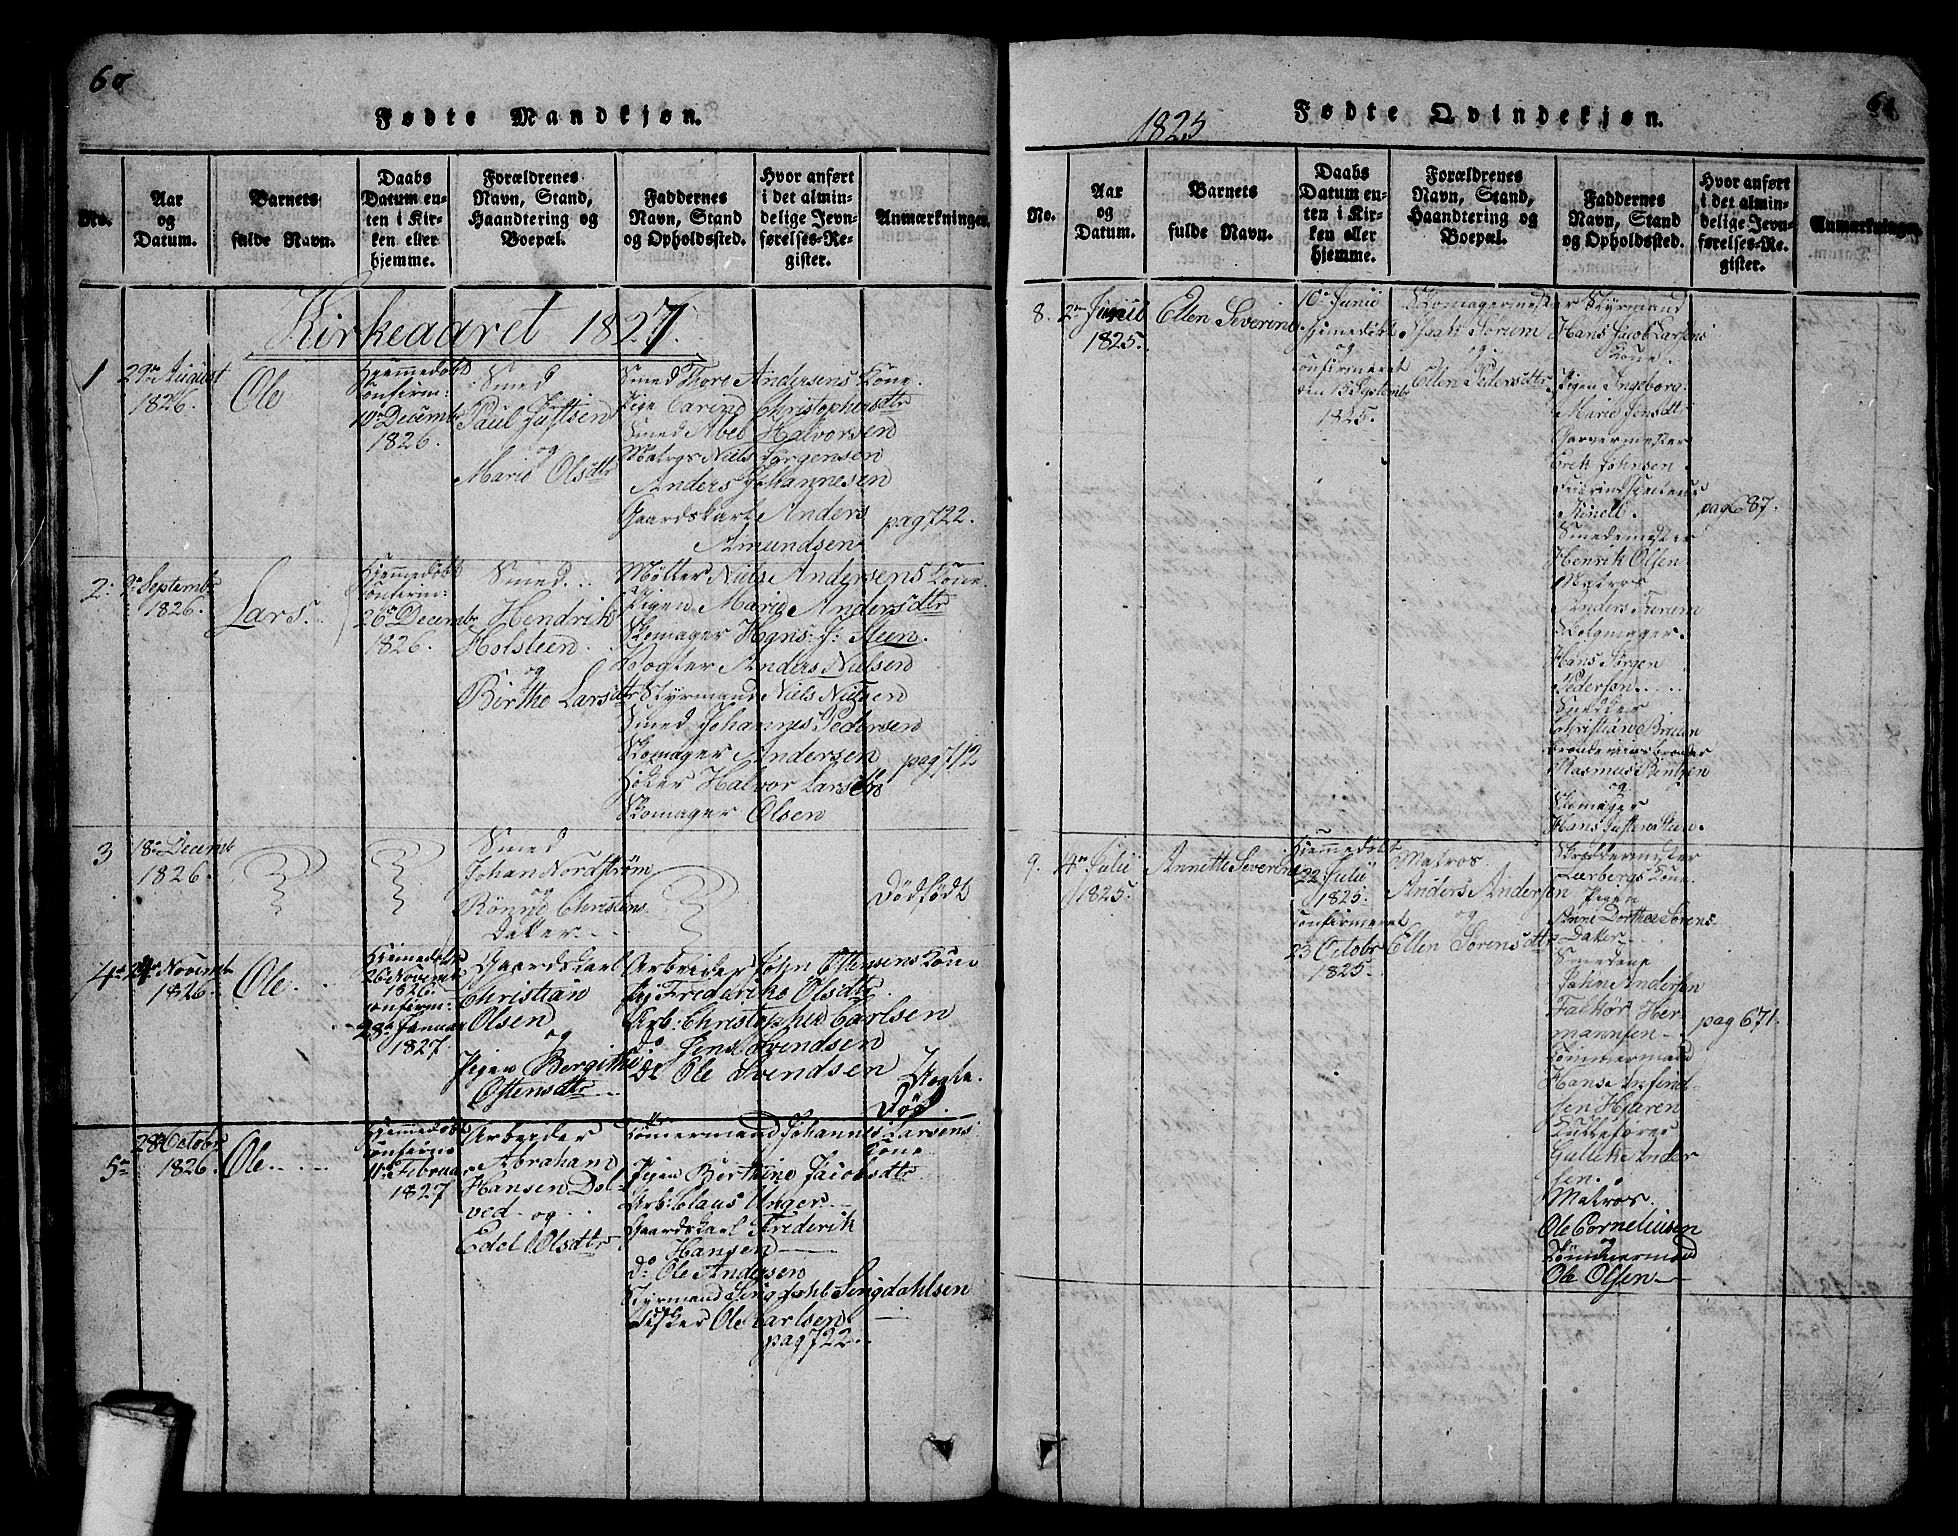 60
Fødte Mandkjøn.
No.
Aar
og
Datum.
Barnets
fulde Navn.
Daabs
Datum en-
ten i Kir-
ken eller
hjemme.
Forældrenes
Navn, Stand,
Haandtering og
Boepæl.
Faddernes
Navn, Stand
og Opholdssted.
Hvor anført
i det almin-
delige Jevn-
førelses-Re-
gister.
Anmærkninger.
Kirkeaaret 1827.
1
29de August
1826.
Ole
Hjemmedøbt
Confirm:
10de Decembr
1826.
Smed
Paul Justsen
og
Marie Olsdtr
Smed Thore Andersens Kone.
Pige Carine Christophersdtr
Smed Abel Halvorsen
Matros Niels Jørgensen
Anders Johannesen
Gaardskarl Anders
Amundsen
pag 722.
2.
Septembr
1826.
Lars.
Hjemmedøbt
Confirm:
26de Decembr
1826.
Smed
Hendrik
Holsteen
og
Birthe Larsdtr
Møller Niels Andersens Kone.
Pigen Marie Andersdtr
Skomager Hans J: Steen.
Vogter Anders Nielsen
Styrmand Niels Nielsen
Smed Johannes Pedersen
Skomager Andersen
Høker Halvor Larsen
Skomager Olsen
pag 712
3
18de Decembr
1826.
Smed
Johan Nordstrøm
og
Christens
Datter
Dødfødt
4
Novembr
1826.
Ole
Hjemmedøbt
26de Novembr
1826.
Confirm:
28de Januar
1827
Gaardskarl
Christian
Olsen
og
Pigen Bergithe
Ostensdtr
Arbeider John Ostensens Kone
Pi: Frederike Olsdtr
Arb: Christopher Carlsen
do Jens Svendsen
do Ole Svendsen
Død.
5
28de Octobr
1826.
Ole
Hjemmedøbt
Confirm:
11de Februar
1827
Arbeider
Abraham
Hansen Dol-
ved og
Edel Olsdtr
Tømermand Johannes Larsens
Kone
Pigen Berthine Jacobsdtr
Arb: Claus Unger
Gaardskarl Frederik
Hansen
do: Ole Andersen
Styrmand
Ole Carlsen
pag 722.
61
1825
Fødte Qvindekjøn.
No.
Aar
og
Datum.
Barnets
fulde Navn.
Daabs
Datum en-
ten i Kir-
ken eller
hjemme.
Forældrenes
Navn, Stand,
Haandtering og
Boepæl.
Faddernes
Navn, Stand
og Opholdssted.
Hvor anført
i det almin-
delige Jevn-
førelses-Re-
gister.
Anmærkninger.
8.
2den Junii
1825.
Ellen Severine
10de Junii
hjemmedøbt
og
confirmeret
den 15 Septembr
1825.
Skomagermester
Isaak Sørum
og
Ellen Pedersdtr
Styrmand
Hans Jacob Larsens
Kone.
Pigen Ingeborg
Marie Jensdtr
Garvermester
Erik Johnsen.
Smedemester
Henrik Olsen
Matros
Anders Furum
Hans Jørgen
Pedersen
Snedker
Rasmus Bentzen
og
Skomager
Hans Justen Steen.
pag 687.
9.
4de Julii
1825.
Annette Severine
Hjemmedøbt
22 Julii
1825.
confirmeret
23 Octobr
1825.
Matros
Anders Andersen
og
Ellen Sørensdtr
Skreddermester
Lærbergs Kone
Pigen
Anne Dorthea Sørens
Datter
Smedene
John Andersen
Falkør Her-
mannsen
Tømmermand
Hjaren
Gullik Ander
sen.
Matros
Ole Corneliusen
og
Tømmermand
Ole Olsen
pag 671.